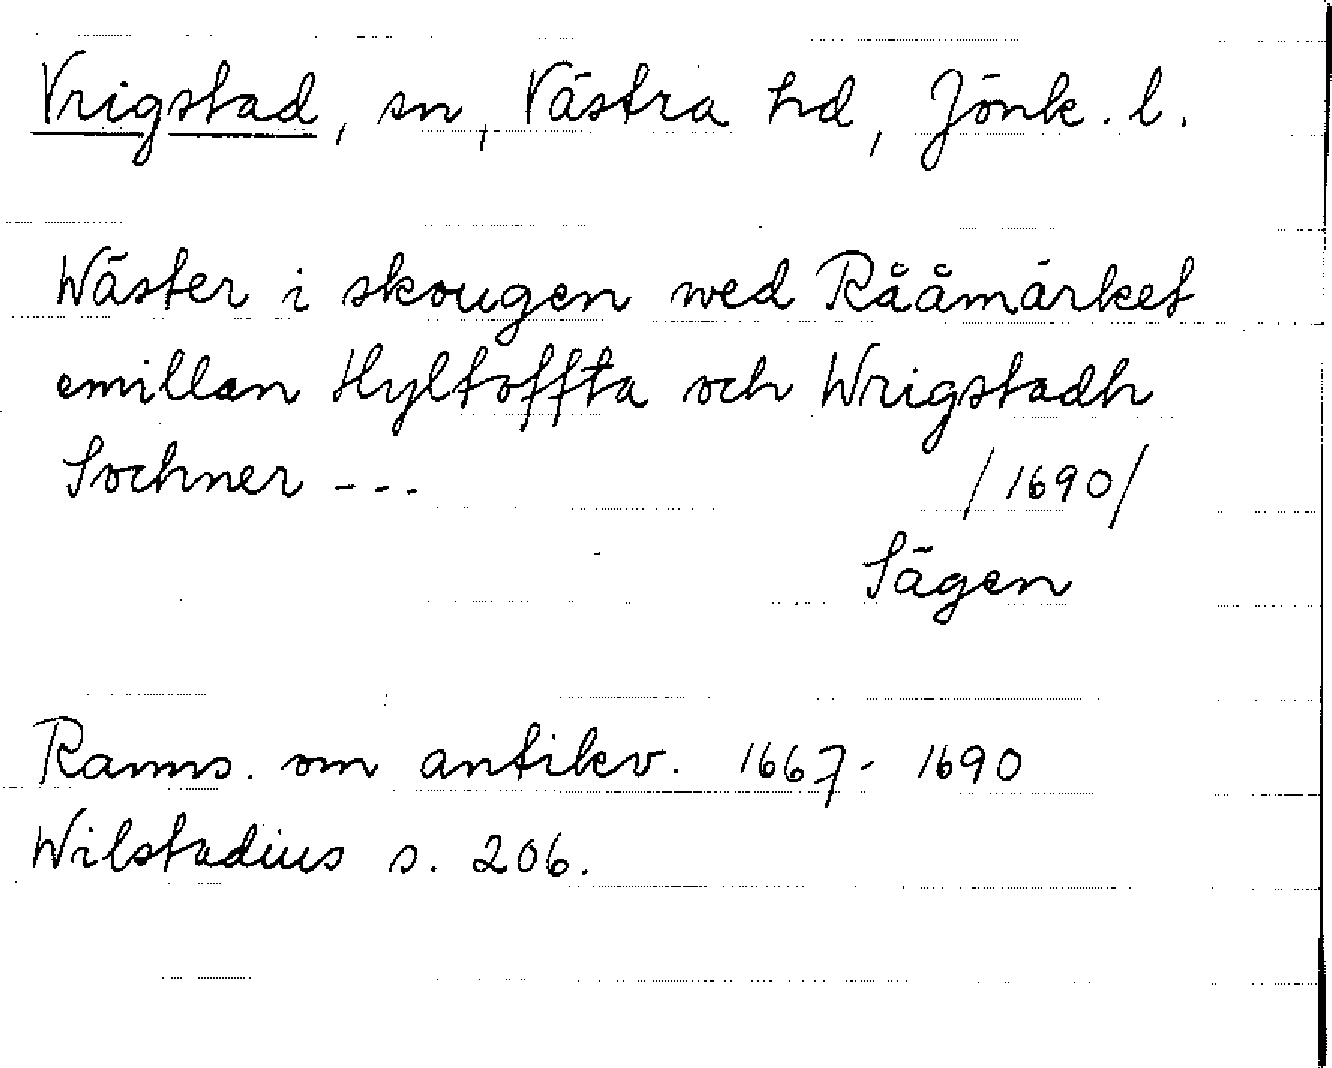 Vrigstad, sn, Västra hd, Jönk. l.
Wäster i skougen wed Råämärket
emillan Hyltoffta och Wrigstadh
Sochner --- /1690/
Sägen
Ranns. om antikv. 1667- 1690
Wilstadius s. 206.